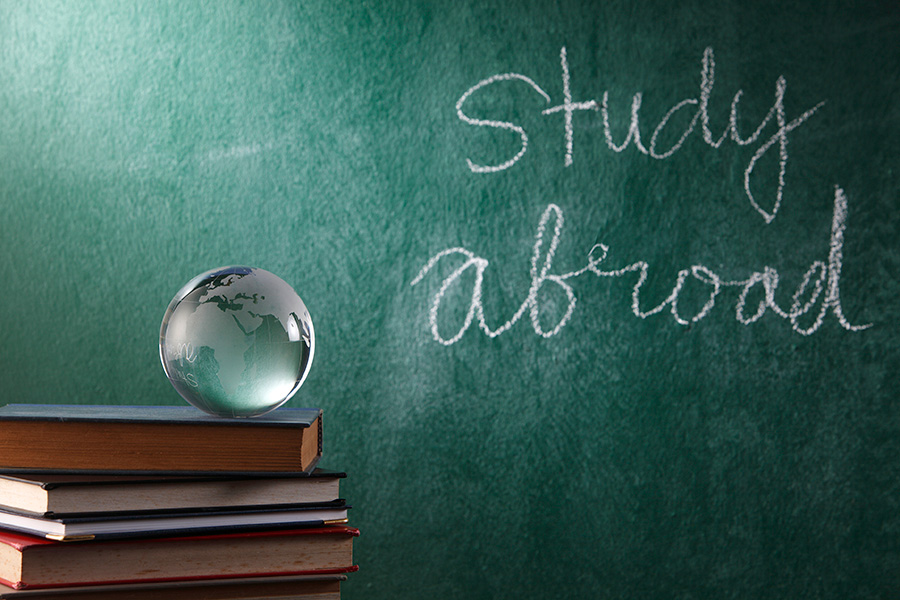 Study
abroad